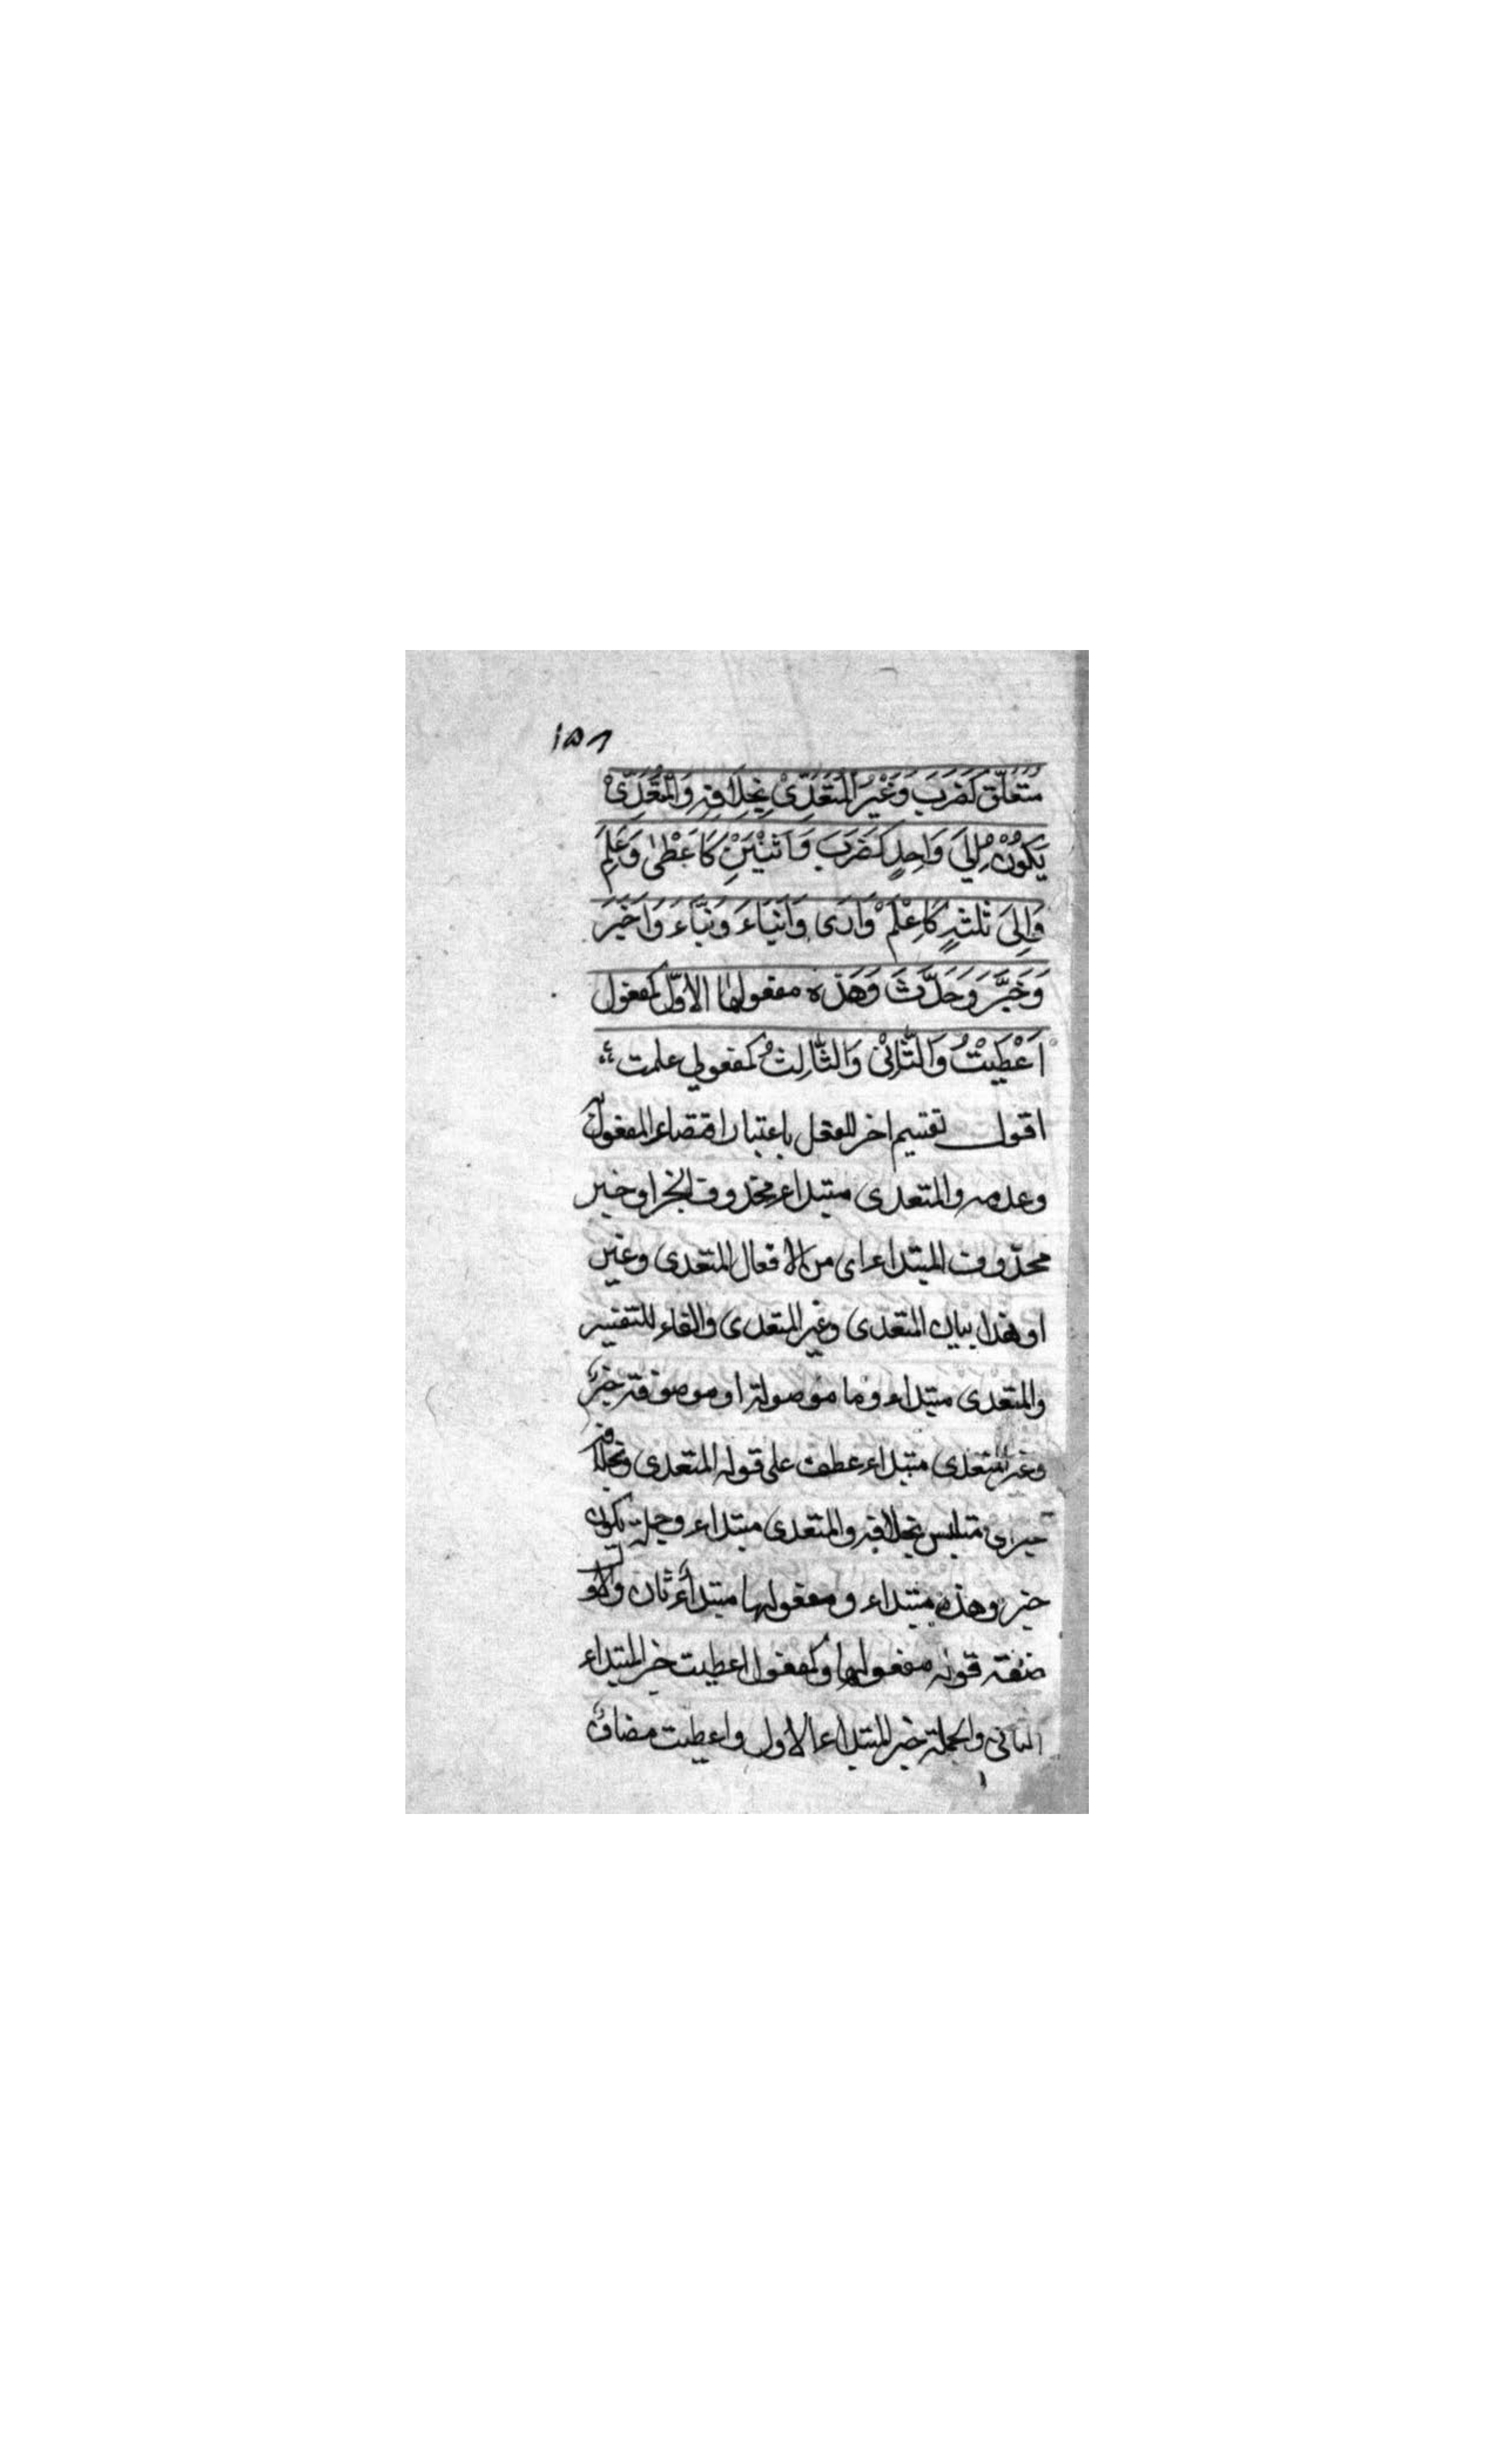 ١٥٨
مُتَعَلّق كَضَرَبَ وَغَيْرُ الْمُتَعَدِّىْ بِخِلَافِهِ وَالْمُتَعَدِّىْ
يَكُوْنُ اِلىَ وَاحِدٍ كَضَرَبَ وَاَثْنَيْنِ كَاَعْطٰى وَعَلِمَ
وَاِلىَ ثَلٰثَةٍ كَاَعْلَمَ وَاَرَى وَاَنْبَاءَ وَنَبَّاءَ وَاَخْبَرَ
وَخَبَّرَ وَحَدَّثَ وَهَذه مفعولها الاوّل كمفعول
اَعْطَيْتُ وَالثَّانِىْ وَالثَّالِثُ كمفعولي علمت
اقول تقسيم اخر للفعل باعتبار اقتضاء المفعول
وعدمه والمتعدى مبتداء محذوف الخبر او خبر
محذوف المبتداء اى من الافعال المتعدى وغير
او هذا بيان المتعدى وغير المتعدى والفاء للتفسير
والمتعدى مبتداء وما موصولة او موصوفة خبره
وغير المتعدى مبتداء عطف على قوله المتعدى وبخلافه
خبر اى متلبس بخلافه والمتعدى مبتداء وجملة يكون
خبر وهذه مبتداء ومفعولها مبتداء ثان والاول
صفة قوله مفعولها وكمفعول اعطيت خبر المبتداء
الثانى والجملة خبر للمبتداء الاول واعطيت مضاف